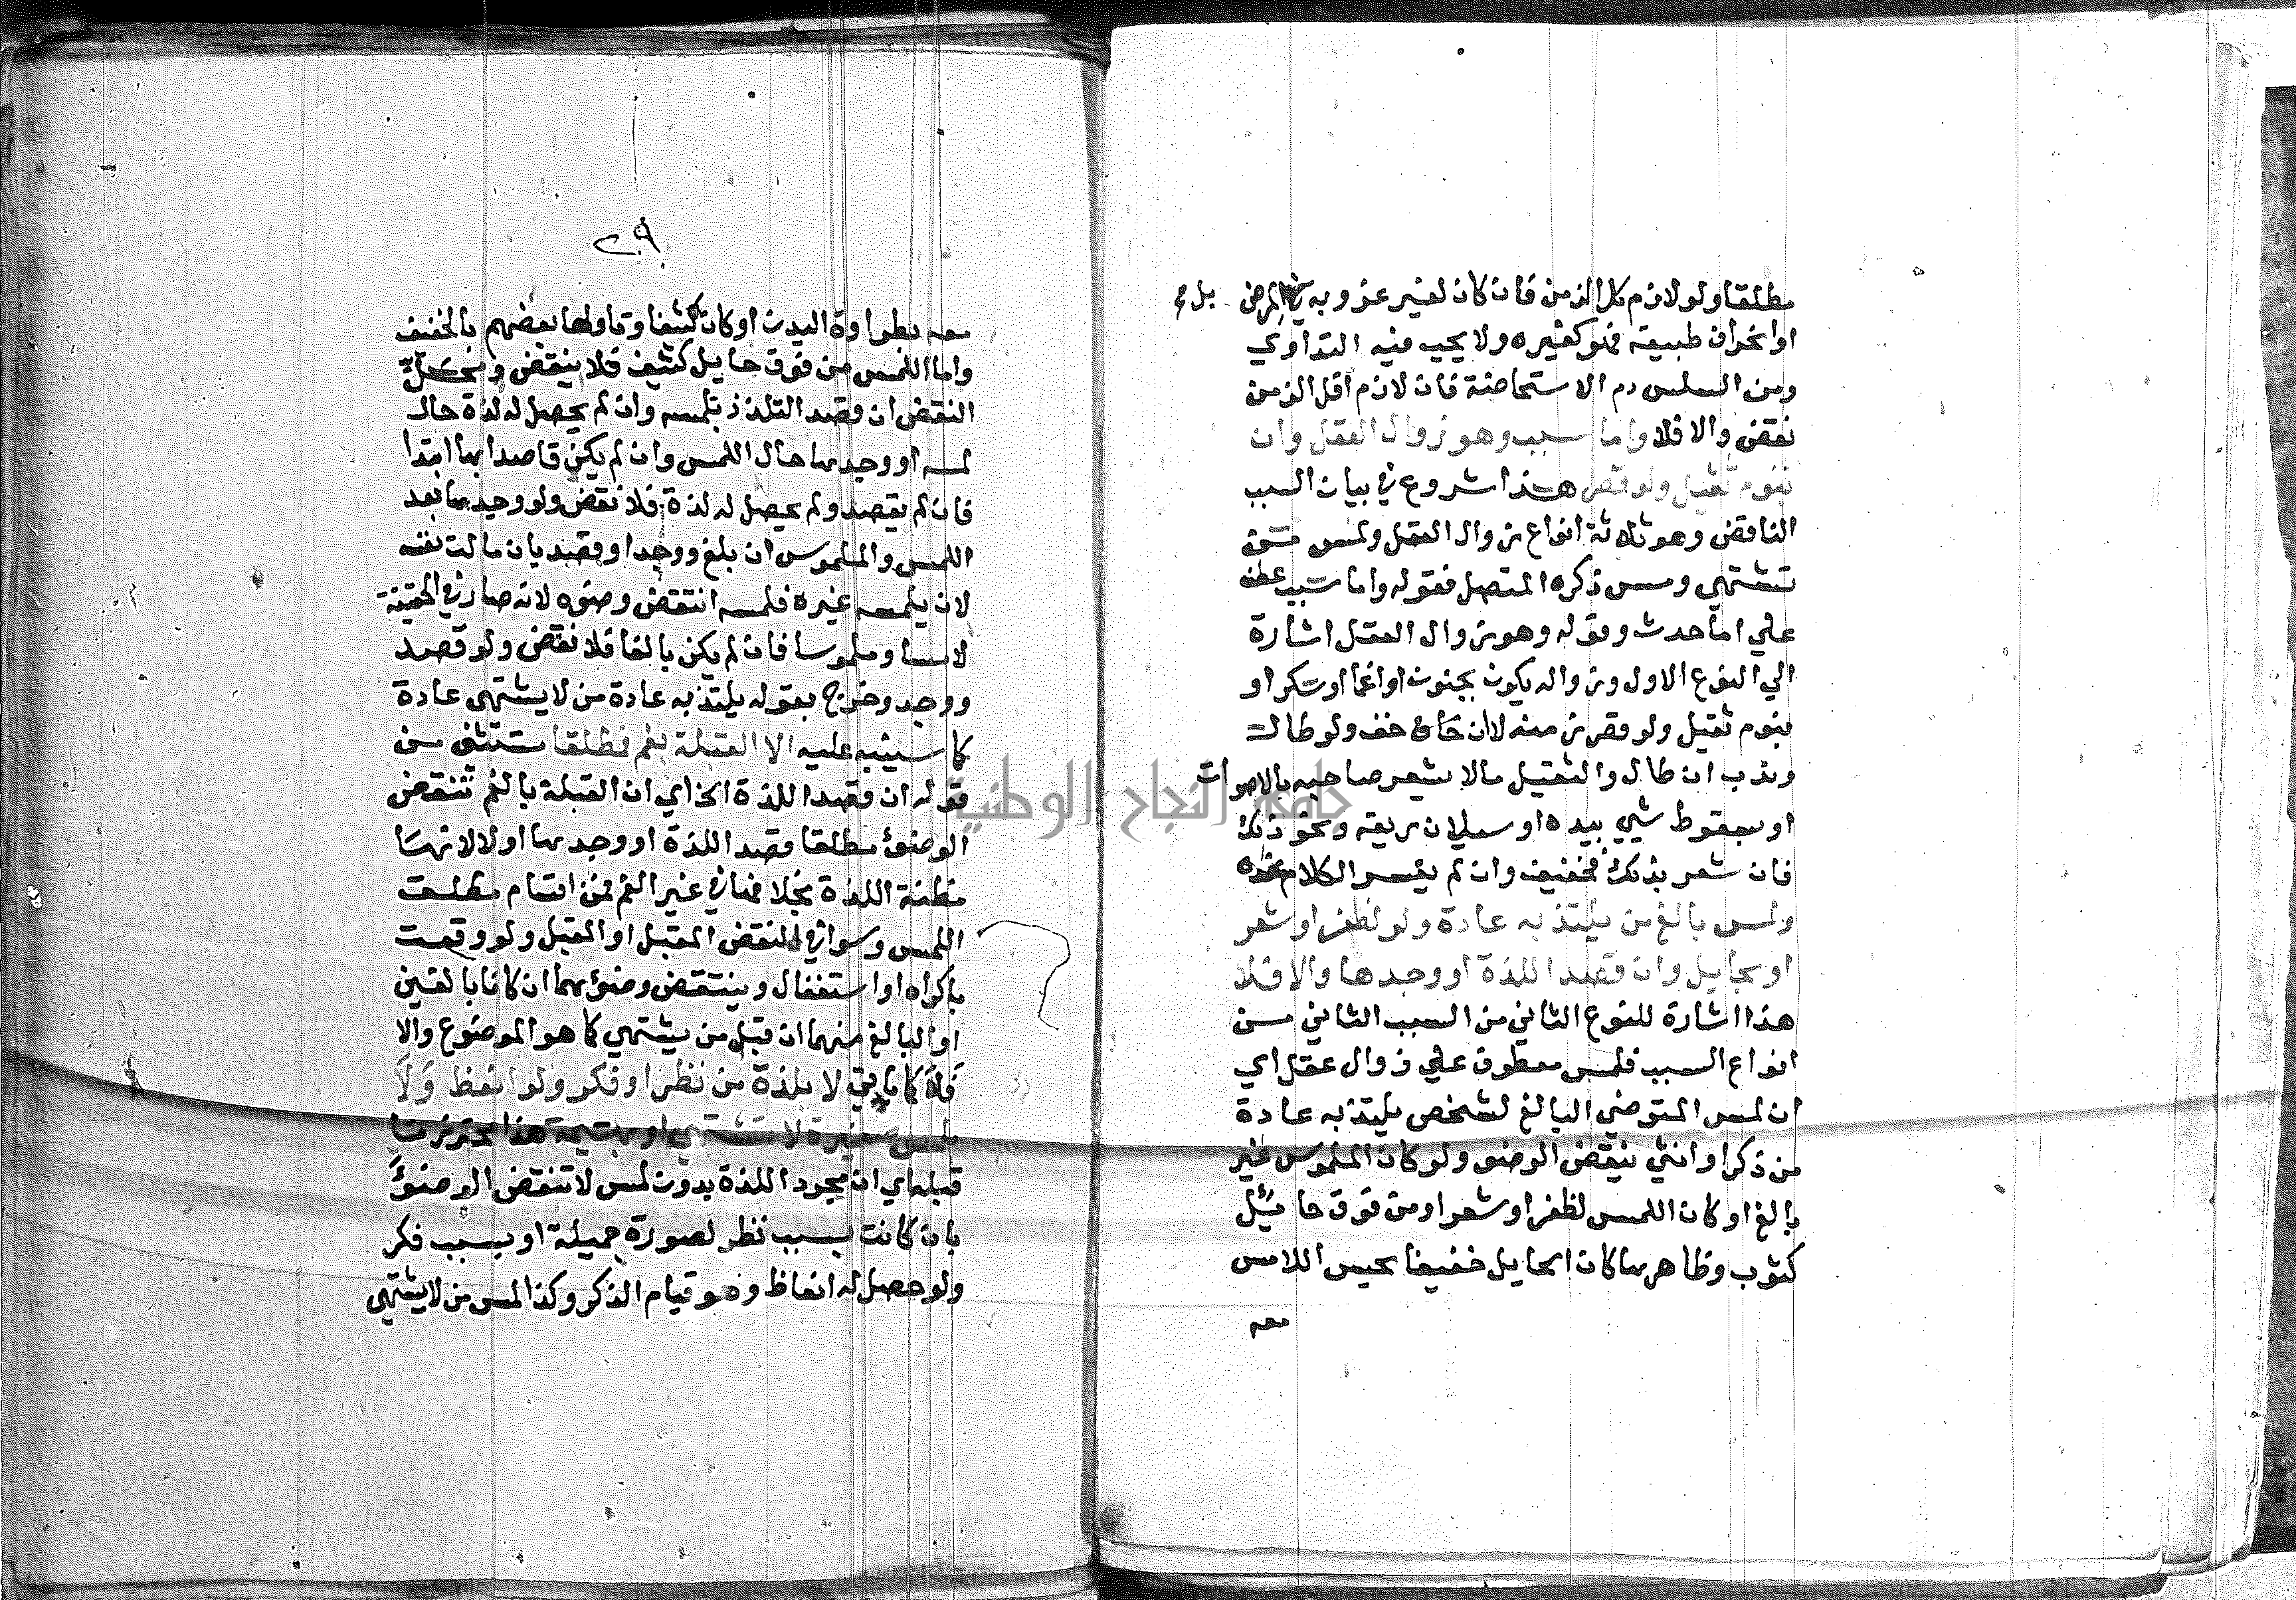 مطلقا ولو لازم كل الزمن فان كان لغير عزوبه بل لمرض
او انحراف طبيعة فهو كغيره ولا يجب فيه التداوي
ومن السلس دم الاستحاضة فان لازم اقل الزمن
نقض والا فلا واما سبب وهو زوال العقل وان
بنوم ثقيل ولو قصر هذا شروع في بيان السبب
الناقض وهو ثلاثة انواع زوال العقل ولمس من
تشتهي ومس ذكره المتصل فقوله واما سبب عطف
علي اما حدث وقوله وهو زوال العقل اشارة
الي النوع الاول وزواله يكون بجنون او اغما او سكر او
بنوم ثقيل ولو قصر زمنه لا ان خف ولو طال
وندب ان طال والثقيل مالا يشعر صاحبه بالاصوات
او بسقوط شي بيده او سيلان ريقه ونحو ذلك
فان شعر بذلك فخفيف وان لم يفسر الكلام عنده
ولمس بالغ من يلتذ به عادة ولو لظفر او شعر
او بحايل وان قصد اللذة او وجدها والا فلا
هذا اشارة للنوع الثاني من السبب الثاني من
انواع السبب فلمس معطوف علي زوال عقل اي
ان لمس المتوضي البالغ لشخص يلتذ به عادة
من ذكر او انثي ينقض الوضو ولو كان الملموس غير
بالغ او كان اللمس لظفر او شعر او من فوق حايل
كثوب وظاهرها كان الحايل خفيفا يحس اللامس
معه
٢٩
معه بطراوة البدن او كان كثيفا وتاولها بعضهم بالخفيف
واما اللمس من فوق حايل كثيف فلا ينقض ومحل
النقض ان قصد التلذذ بلمسه وان لم يحصل له لذة حال
لمسه او وجدها حال اللمس وان لم يكن قاصدا لها ابتدا
فان لم يقصد ولم يحصل له لذة فلا نقض ولو وجدها بعد
اللمس والملموس ان بلغ ووجد او قصد بان مالت نفسه
لان يلمسه غيره فلمسه انتقض وضوه لانه صار في الحقيقة
لامسا وملموسا فان لم يكن بالغا فلا نقض ولو قصد
ووجد وخرج بقوله يلتذ به عادة من لا يشتهي عادة
كما سينبه عليه الا القبلة بفم فطلقا مستثني من
قوله ان قصد اللذة الخ اي ان القبلة بالفم تنقض
الوضوء مطلقا قصد اللذة او وجدها او لا لانها
مظنة اللذة بخلافها في غير الفم فمن اقسام مطلق
اللمس وسوا في النقض المقبل او المقبل ولو وقعت
باكراه او استغفال وينتقض وضوءهما ان كانا بالغين
او البالغ منهما ان قبل من يشتهي كما هو الموضوع والا
فلا لا بلذة من نظر او فكر ولو انعظ ولا
بلمس صغيرة لا تشتهي او بهيمة هذا محترز ما
قبله اي ان مجرد اللذة بدون لمس لا تنقض الوضوء
بان كانت بسبب نظر لصورة جميلة او بسبب فكر
ولو حصل له انعاظ وهو قيام الذكر وكذا لمس من لا يشتهي
جامعة النجاح الوطنية